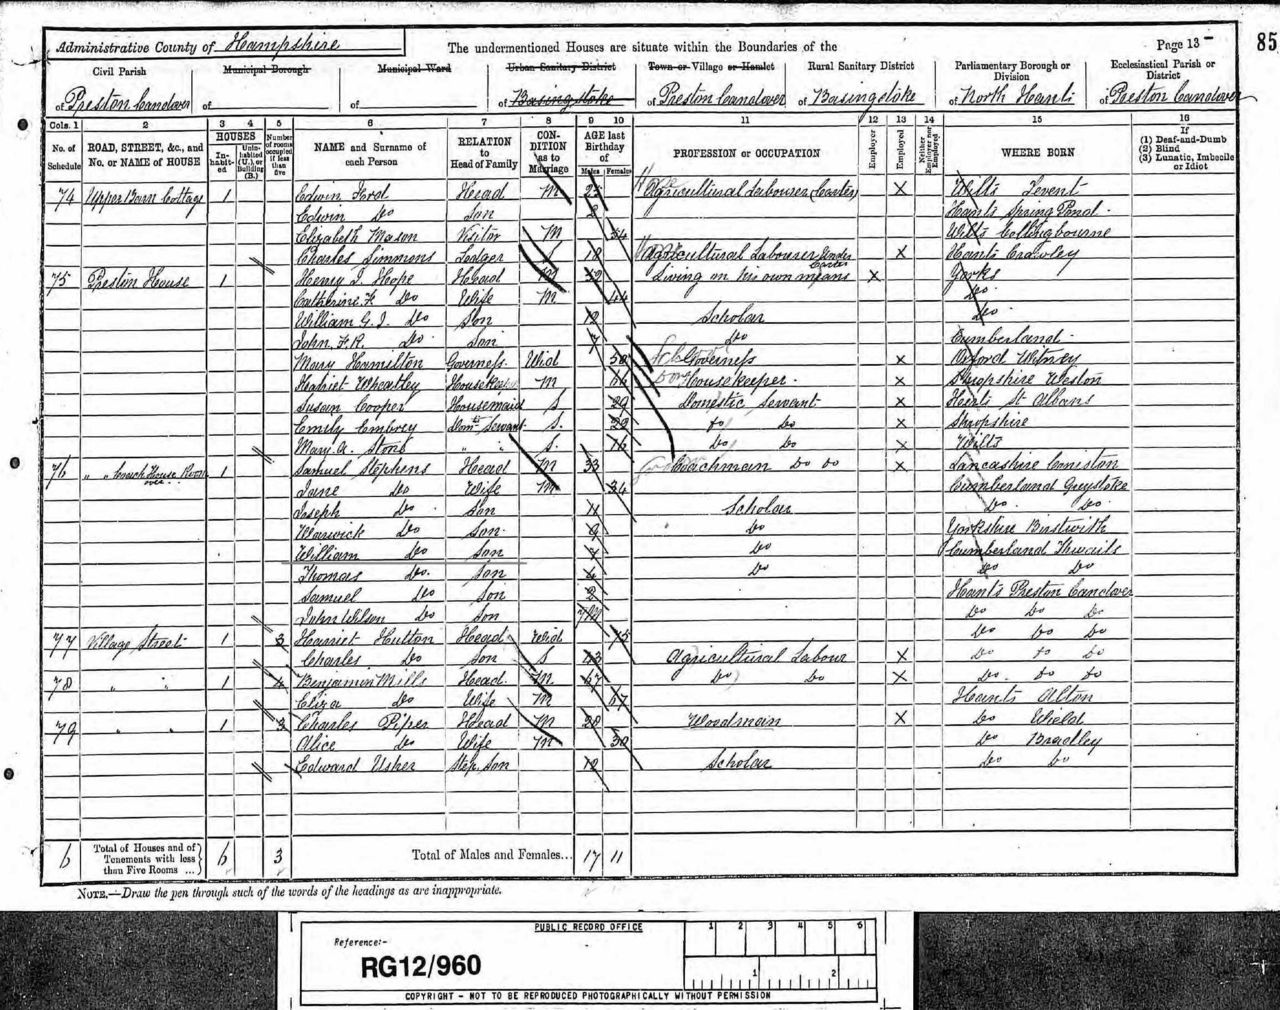 85
Administrative County of Hampshire The undermentioned Houses are situate within the Boundaries of the Page 13
Civil Parish Municipal Borough Municipal Ward Urban Sanitary District Town or Village or Hamlet Rural Sanitary District Parliamentary Borough or Division Ecclesiastical Parish or District
of Preston Candover of of of Basingstoke of Preston Candover of Basingstoke of North Hants of Preston Candover
Cols. 1 2 3 4 5 6 7 8 9 10 11 12 13 14 15 16
No. of Schedule ROAD, STREET, &c., and No. or NAME of HOUSE HOUSES Inhabited Uninhabited (U.), or Building (B.) Number of rooms occupied if less than five NAME and Surname of each Person RELATION to Head of Family CONDITION as to Marriage AGE last Birthday of Males Females PROFESSION or OCCUPATION Employer Employed Neither Employer nor Employed WHERE BORN If (1) Deaf-and-Dumb (2) Blind (3) Lunatic, Imbecile or Idiot
74 Upper Barn Cottage 1 Edwin Ford Head M Agricultural Labourer (Carter) X Wilts
Edwin Do Son 2 Hants Spring Pond
Elizabeth Mason Visitor M 34 Wilts Collingbourne
Charles Simmons Lodger 18 Agricultural Labourer Under Carter X Hants Crawley
75 Preston House 1 Henry J. Hope Head M Living on his own means X Yorks
Catherine F. Do Wife M 44 Do
William G. J. Do Son 12 Scholar Do
John F. R. Do Son 7 Do Cumberland
Mary Hamilton Governess Wid 50 Governess X Oxford Witney
Harriet Wheatley Housekeeper M 66 Housekeeper X Shropshire Weston
Susan Cooper Housemaid S 29 Domestic Servant X Herts St Albans
Emily Embrey Dom Servant S. 29 Do Do X Shropshire
Mary A. Stone " " S. 16 Do Do X Wilts
76 " " Coach House Room over 1 Samuel Stephens Head M 33 Coachman Do Do X Lancashire Coniston
Jane Do Wife M 34 Cumberland Greystoke
Joseph Do Son 11 Scholar Do Do
Warwick Do Son 9 Do Yorkshire Birstwith
William Do Son 7 Do Cumberland Thwaits
Thomas Do. Son 4 Do Do Do
Samuel Do Son 2 Hants Preston Candover
John Wilson Do Son Do Do Do
77 Village Street 1 3 Harriet Hutton Head Wid 75 Do Do Do
Charles Do Son S 43 Agricultural Labour X Do Do Do
78 " " 1 4 Benjamin Mills Head M 67 Do Do X Do Do Do
Eliza Do Wife M 67 Hants Alton
79 " " 1 3 Charles Piper Head M 28 Woodman X Do Wield
Alice Do Wife M 30 Do Bradley
Edward Usher Step Son 10 Scholar Do Do
6 Total of Houses and of Tenements with less than Five Rooms ... 6 3 Total of Males and Females... 17 11
NOTE.—Draw the pen through such of the words of the headings as are inappropriate.
PUBLIC RECORD OFFICE
1 2 3 4 5 6
Reference:-
RG12/960
1 2
COPYRIGHT - NOT TO BE REPRODUCED PHOTOGRAPHICALLY WITHOUT PERMISSION